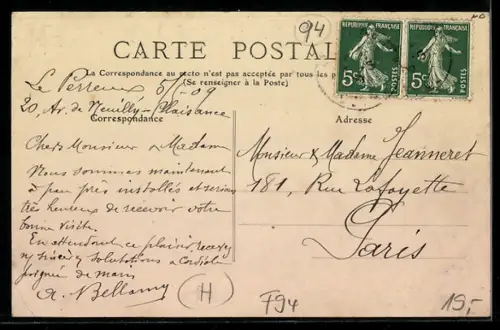 94
CARTE POSTALE
REPUBLIQUE FRANÇAISE
5c
POSTES
REPUBLIQUE FRANÇAISE
5c
POSTES
La Correspondance au recto n'est pas acceptée par tous les
(Se renseigner à la Poste)
Le Perreux 09
20, Av. de Neuilly-Plaisance
Correspondance
Adresse
Chers Monsieur & Madame
Nous sommes maintenant
à peu près installés et serions
très heureux de recevoir votre
bonne visite.
En attendant ce plaisir, recevez
salutations & cordiale
poignée de main
A. Bellamy
Monsieur & Madame Jeanneret
181, Rue Lafayette
Paris
H
F94
19,-